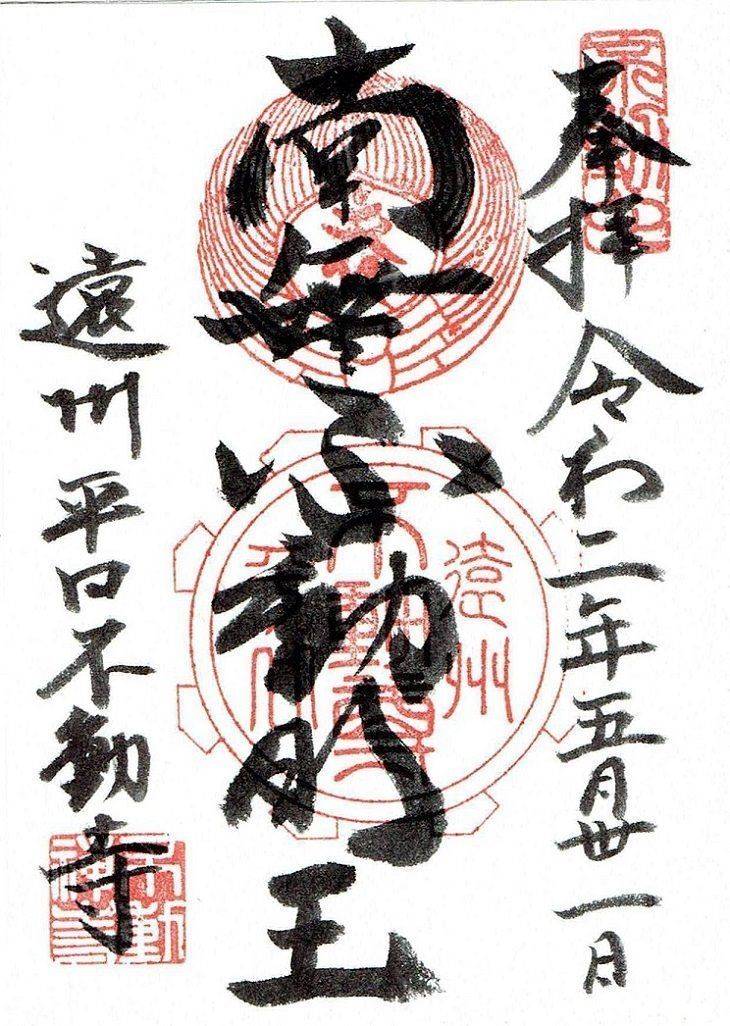 奉拝 令和二年五月卅一日
南無不動明王
遠州平口不動寺
遠州
不動寺
平口